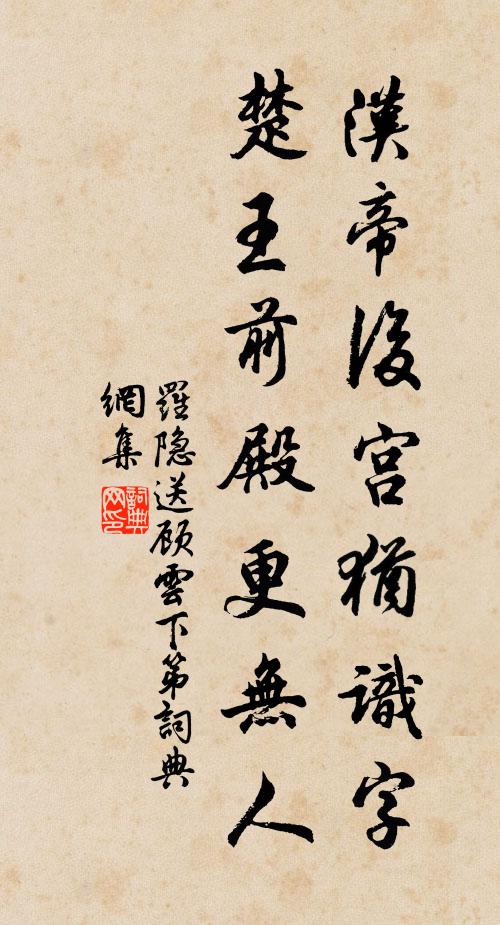 漢帝後宮猶識字
楚王前殿更無人
羅隐送顾雲下第詞典
網集
詞典网印